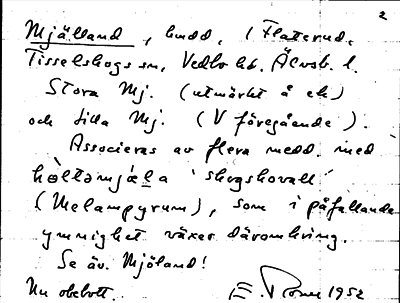 2
Mjälland, hudd, i Flaterud,
Tisselskogs sn, Vedbo hd. Älvsb. l.
Stora Mj. (utmärkt å ek)
och Lilla Mj. (V föregående).
Associeras av flera medd. med
höltəmjæla 'skogskovall'
(Melampyrum), som i påfallande
ymnighet växer däromkring.
Se äv. Mjöland!
Nu obebott. 1952